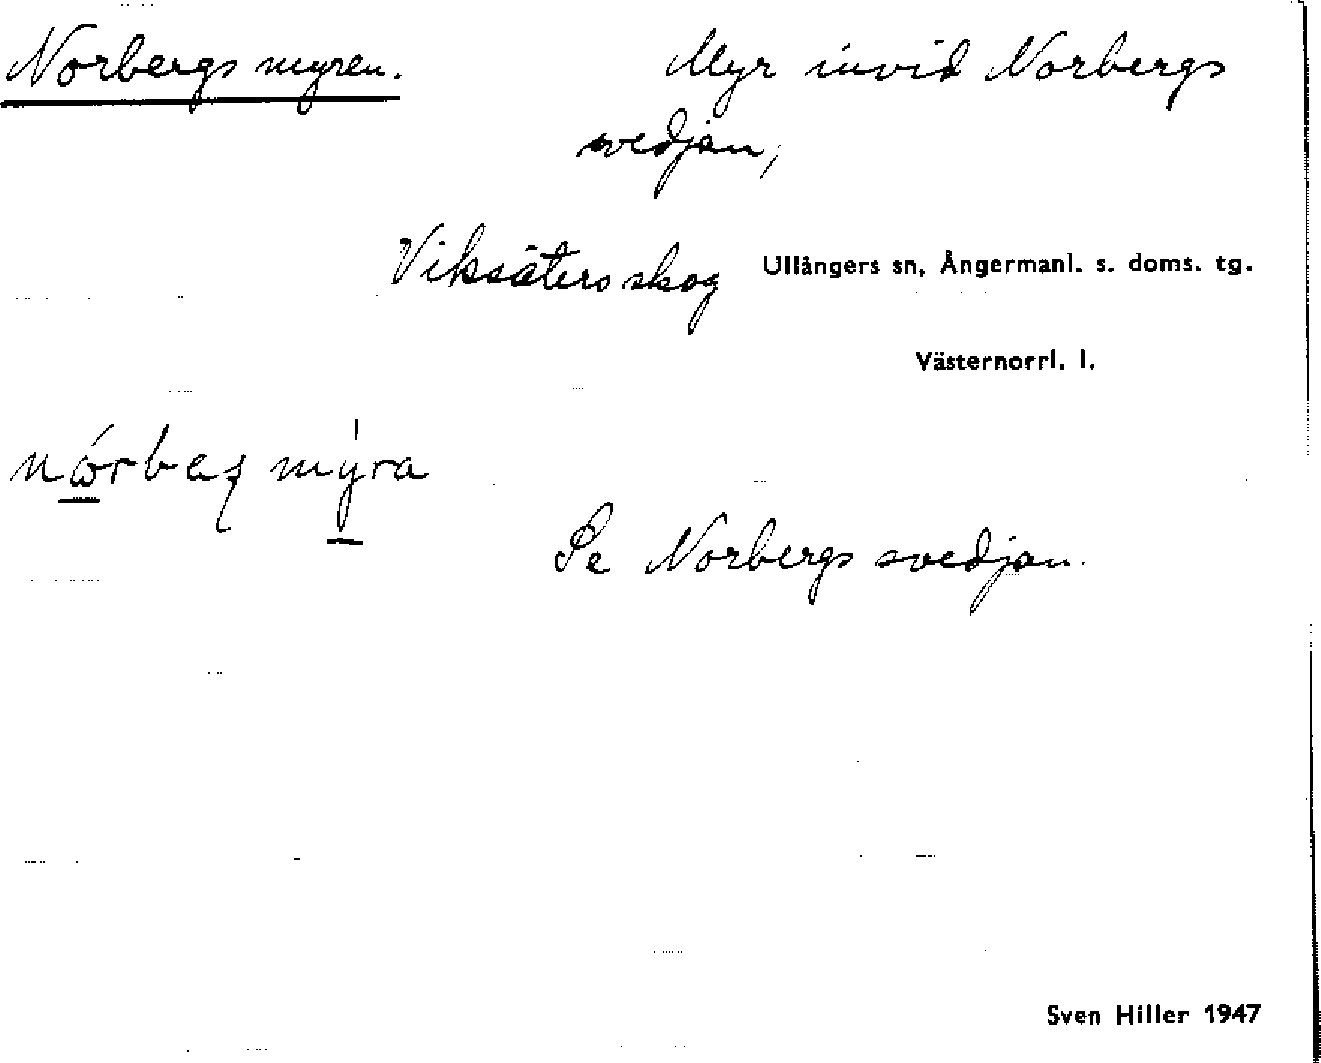 Norbergs myren. Myr invid Norbergs
svedjan,
Viksäters skog Ullångers sn, Ångermanl. s. doms. tg.
Västernorrl. l.
mýra
Se Norbergs svedjan.
Sven Hiller 1947